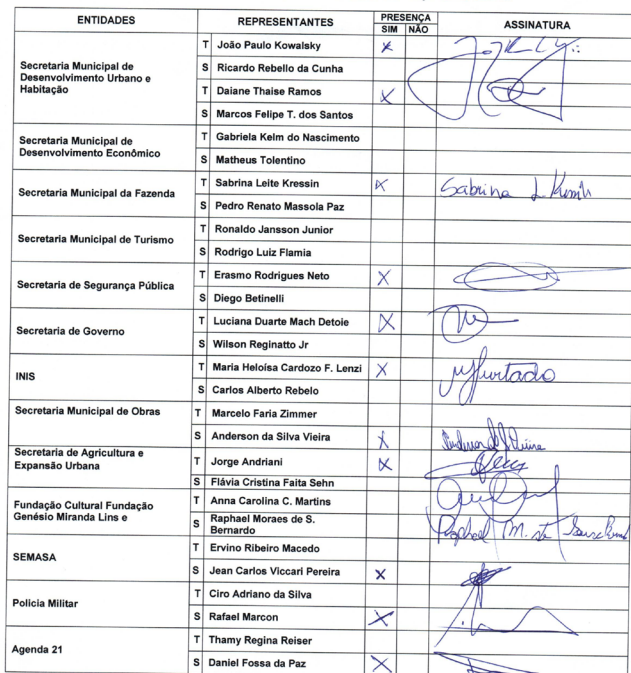 ENTIDADES REPRESENTANTES PRESENÇA ASSINATURA
SIM NÃO
Secretaria Municipal de Desenvolvimento Urbano e Habitação
T João Paulo Kowalsky X
S Ricardo Rebello da Cunha
T Daiane Thaise Ramos X
S Marcos Felipe T. dos Santos
Secretaria Municipal de Desenvolvimento Econômico
T Gabriela Kelm do Nascimento
S Matheus Tolentino
Secretaria Municipal da Fazenda
T Sabrina Leite Kressin X Sabrina L.
S Pedro Renato Massola Paz
Secretaria Municipal de Turismo
T Ronaldo Jansson Junior
S Rodrigo Luiz Flamia
Secretaria de Segurança Pública
T Erasmo Rodrigues Neto X
S Diego Betinelli
Secretaria de Governo
T Luciana Duarte Mach Detoie X
S Wilson Reginatto Jr
INIS
T Maria Heloísa Cardozo F. Lenzi X
S Carlos Alberto Rebelo
Secretaria Municipal de Obras
T Marcelo Faria Zimmer
S Anderson da Silva Vieira X
Secretaria de Agricultura e Expansão Urbana
T Jorge Andriani X
S Flávia Cristina Faita Sehn
Fundação Cultural Fundação Genésio Miranda Lins e
T Anna Carolina C. Martins
S Raphael Moraes de S. Bernardo Raphael M. de
SEMASA
T Ervino Ribeiro Macedo
S Jean Carlos Viccari Pereira X
Policia Militar
T Ciro Adriano da Silva
S Rafael Marcon X
Agenda 21
T Thamy Regina Reiser
S Daniel Fossa da Paz X